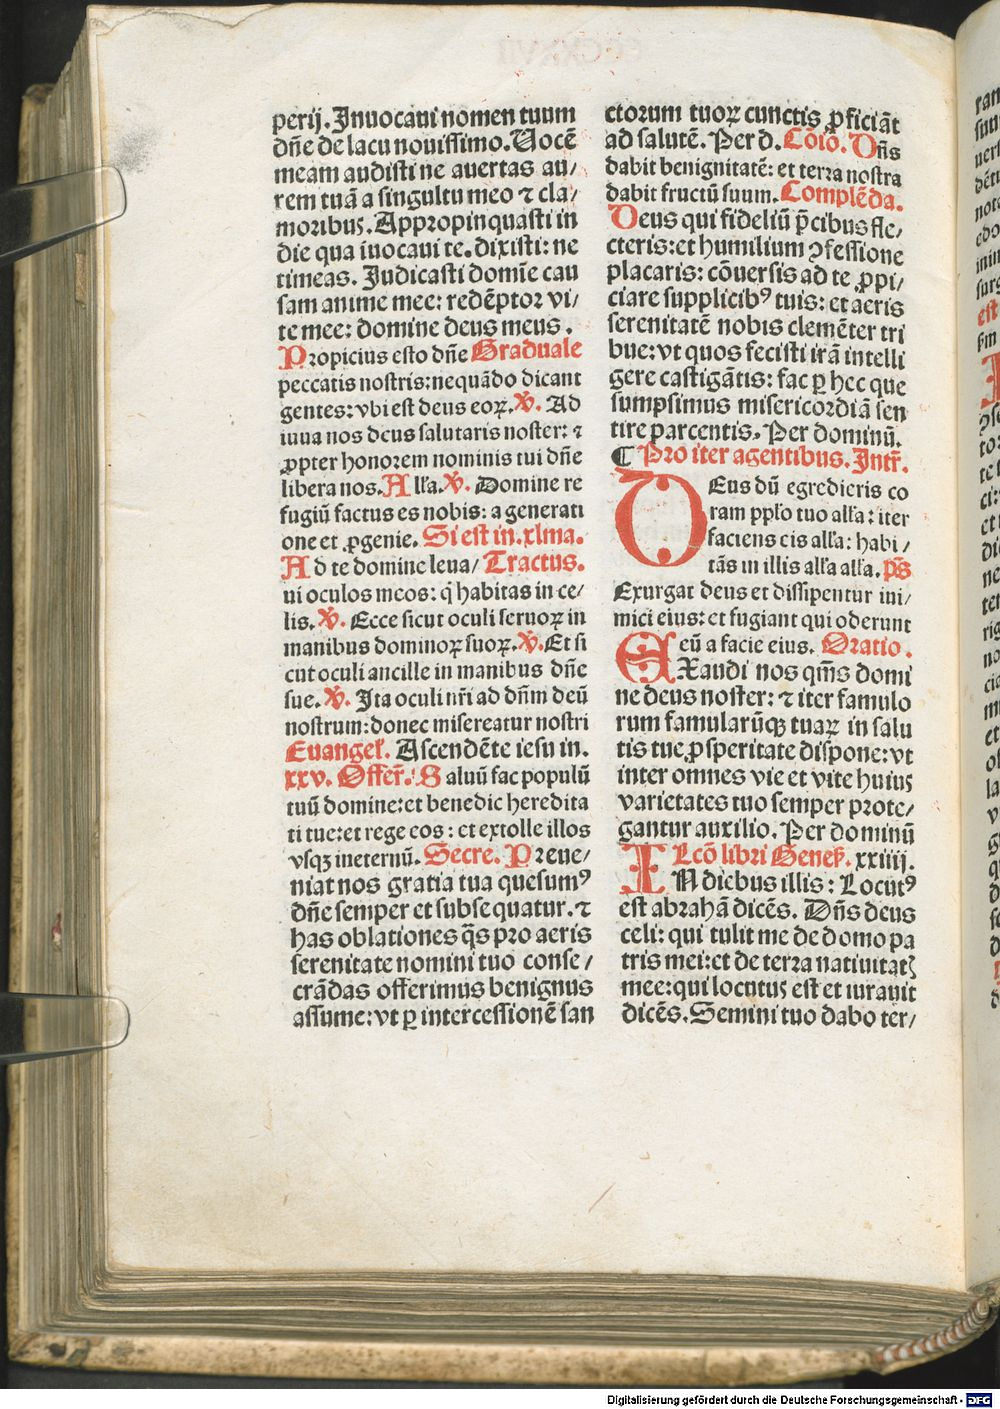 perij. Inuocaui nomen tuum
dñe de lacu nouissimo. Uocẽ
meam audisti ne auertas au/
rem tuã a singultu meo ⁊ cla/
moribus. Appropinquasti in
die qua iuocaui te. dixisti: ne
timeas. Iudicasti domĩe cau
sam anime mee: redẽptor vi/
te mee: domine deus meus.
Propicius esto dñe Graduale
peccatis nostris: nequãdo dicant
gentes: vbi est deus eoꝝ. ℣. Ad
iuua nos deus salutaris noster: ⁊
ꝓpter honorem nominis tui dñe
libera nos. Alľa. ℣. Domine re
fugiũ factus es nobis: a generati
one et ꝓgenie. Si est in .xlma.
Ad te domine leua/ Tractus.
ui oculos meos: q̃ habitas in ce/
lis. ℣. Ecce sicut oculi seruoꝝ in
manibus dominoꝝ suoꝝ. ℣. Et si
cut oculi ancille in manibus dñe
sue. ℣. Ita oculi nr̃i ad dñm deũ
nostrum: donec misereatur nostri
Euangeľ. Ascendẽte iesu in.
xxv. Offer̃. Saluũ fac populũ
tuũ domine: et benedic heredita
ti tue: et rege eos: et extolle illos
vsqꝫ ineternũ. Secre. Preue/
niat nos gratia tua quesumꝰ
dñe semper et subsequatur. ⁊
has oblationes q̃s pro aeris
serenitate nomini tuo conse/
crãdas offerimus benignus
assume: vt ꝑ intercessionẽ san
ctorum tuoꝝ cunctis ꝓficiãt
ad salutẽ. Per d. Cõio. Dñs
dabit benignitatẽ: et terra nostra
dabit fructũ suum. Complẽda.
Deus qui fideliũ p̃cibus fle/
cteris: et humilium ꝯfessione
placaris: cõuersis ad te ꝓpi/
ciare supplicibꝰ tuis: et aeris
serenitatẽ nobis clemẽter tri
bue: vt quos fecisti irã intelli
gere castigãtis: fac ꝑ hec que
sumpsimus misericordiã sen
tire parcentis. Per dominũ.
¶ Pro iter agentibus. Intr̃.
DEus dũ egredieris co
ram ppľo tuo alľa: iter
faciens eis alľa: habi/
tãs in illis alľa alľa. p̃s
Exurgat deus et dissipentur ini/
mici eius: et fugiant qui oderunt
eũ a facie eius. Oratio.
EXaudi nos qm̃s domi
ne deus noster: ⁊ iter famulo
rum famularũqꝫ tuaꝝ in salu
tis tue ꝓsperitate dispone: vt
inter omnes vie et vite huius
varietates tuo semper prote/
gantur auxilio. Per dominũ
Lcõ libri Geneľ. xxiiij.
IN diebus illis: Locutꝰ
est abrahã dicẽs. Dñs deus
celi: qui tulit me de domo pa
tris mei: et de terra natiuitatꝭ
mee: qui locutus est et iurauit
dicẽs. Semini tuo dabo ter/
Digitalisierung gefördert durch die Deutsche Forschungsgemeinschaft - DFG